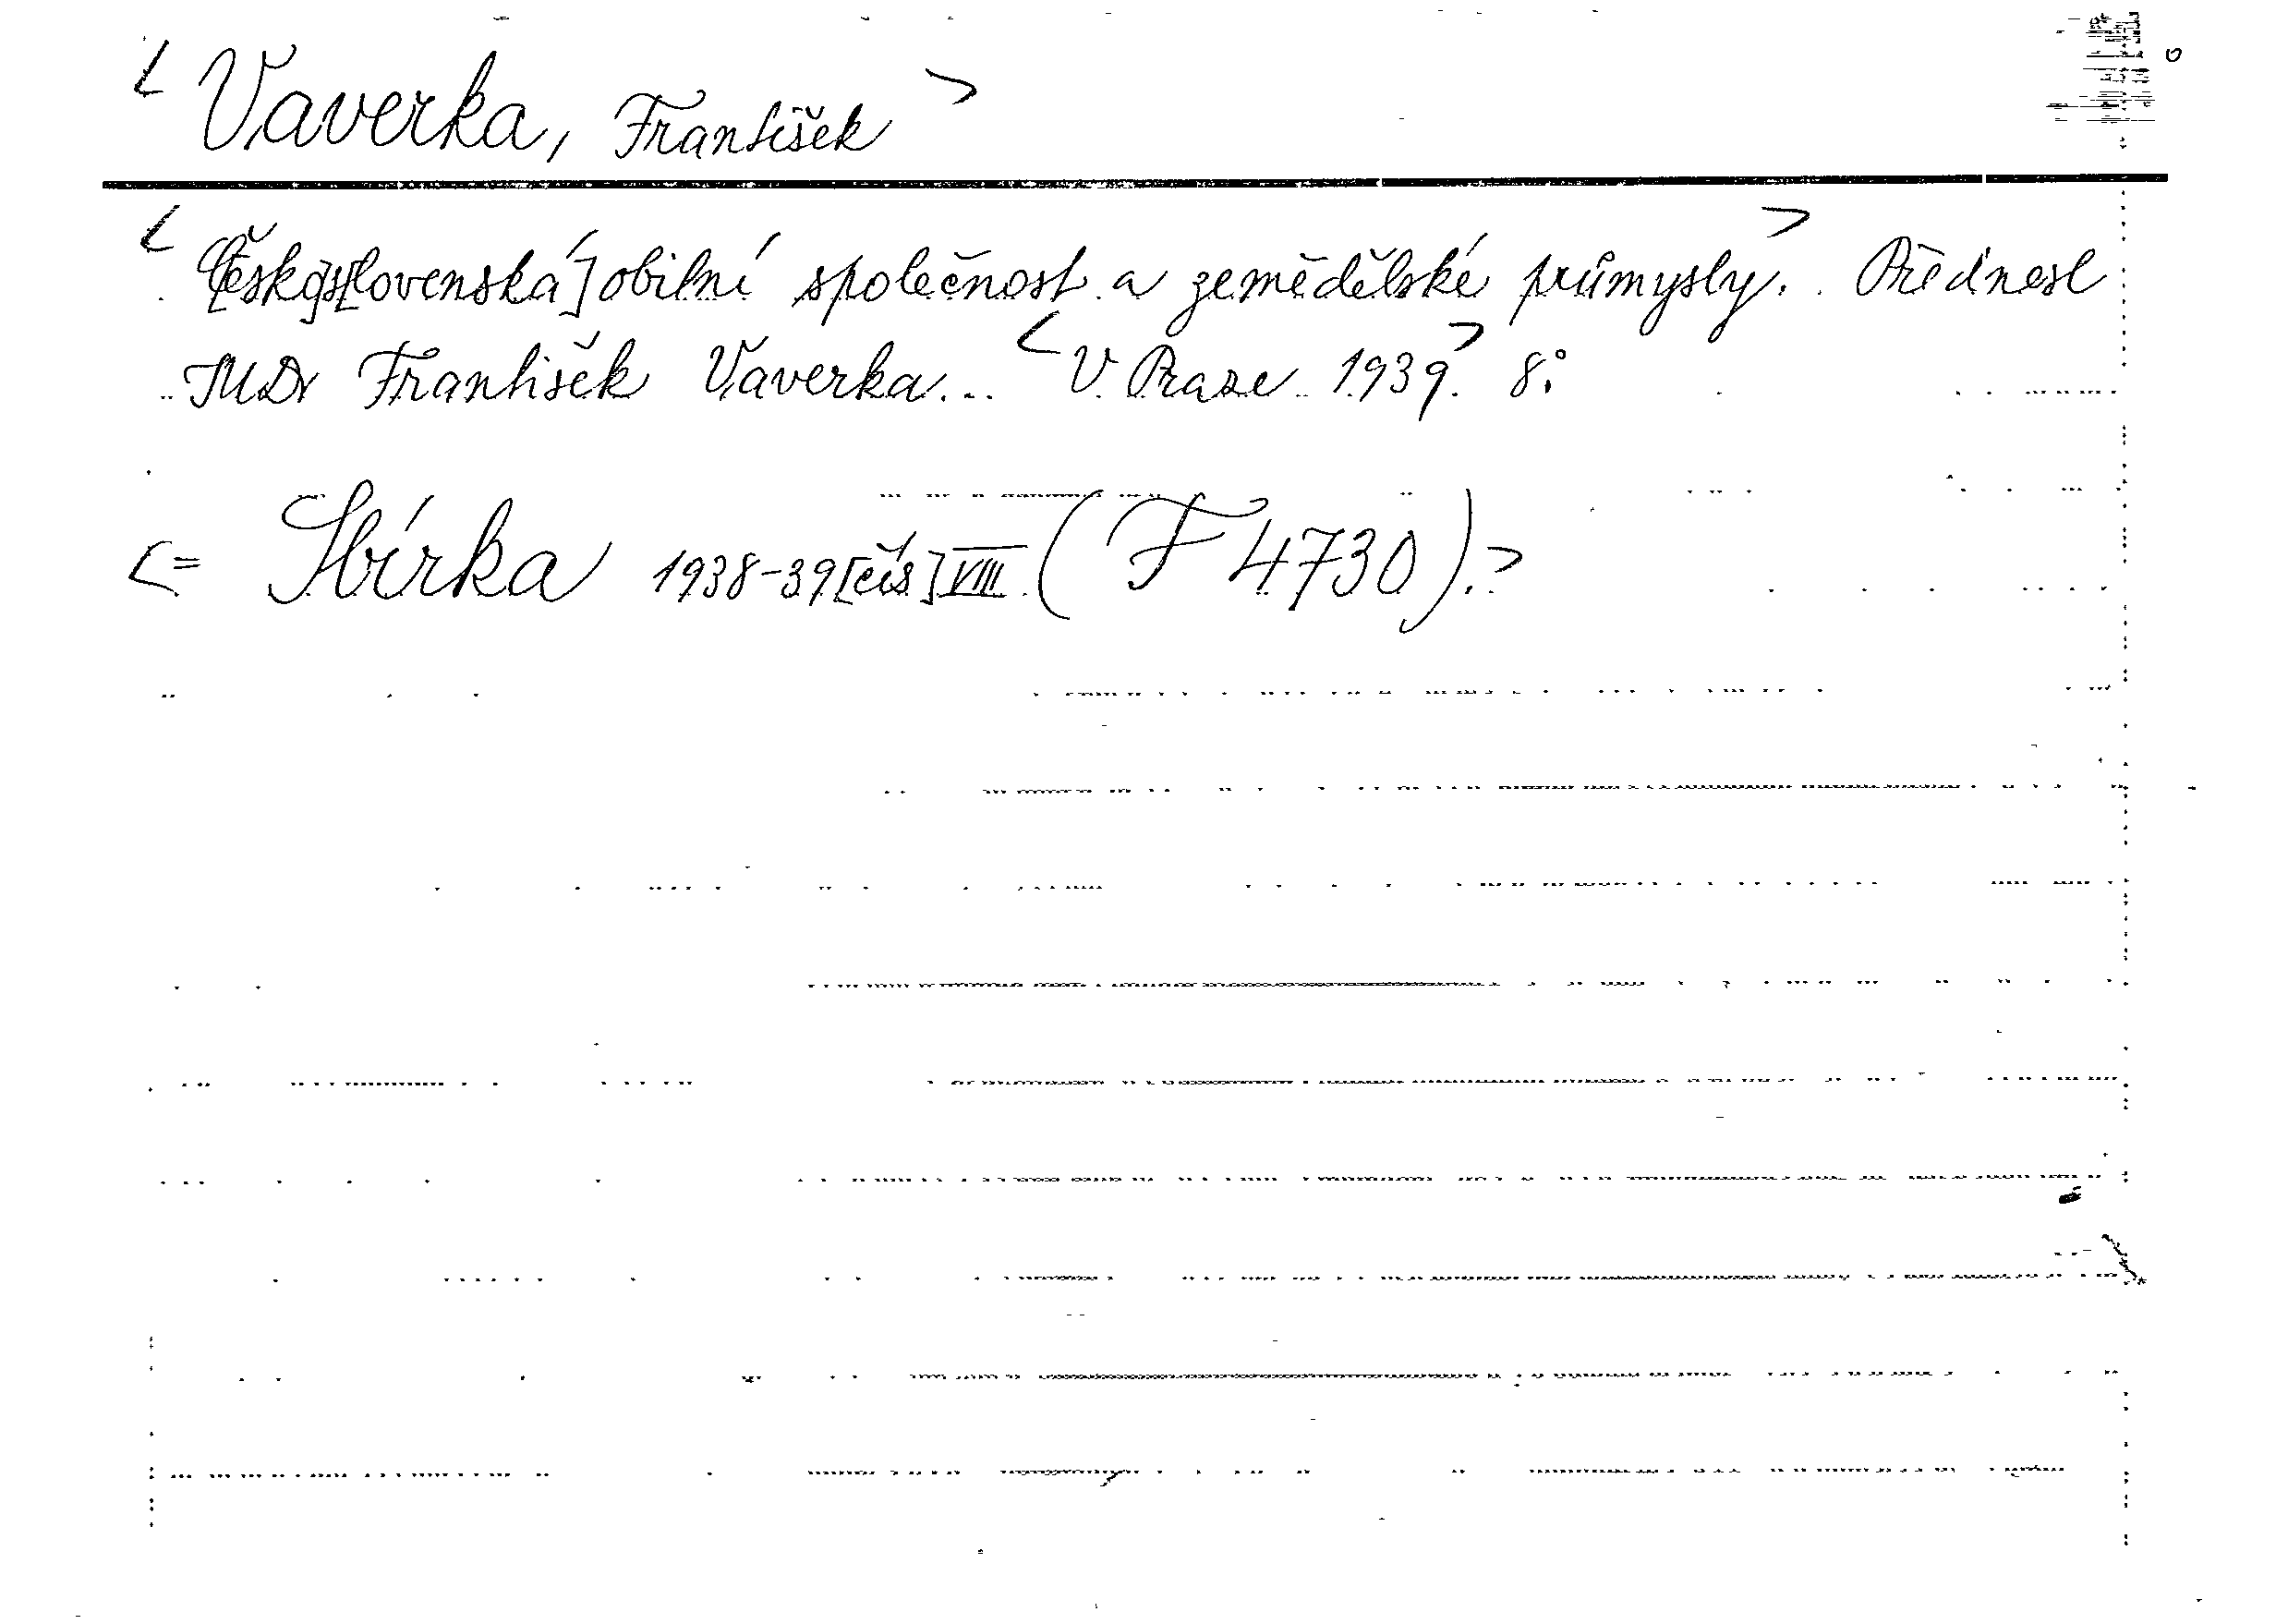 < Vaverka, František >
< Č[esko]s[lovenská] obilní společnost a zemědělské průmysly. > Přednesl
JUDr František Vaverka... < V Praze 1939. > 8°.
<= Sbírka 1938-39 [čís] VIII (F 4730). >